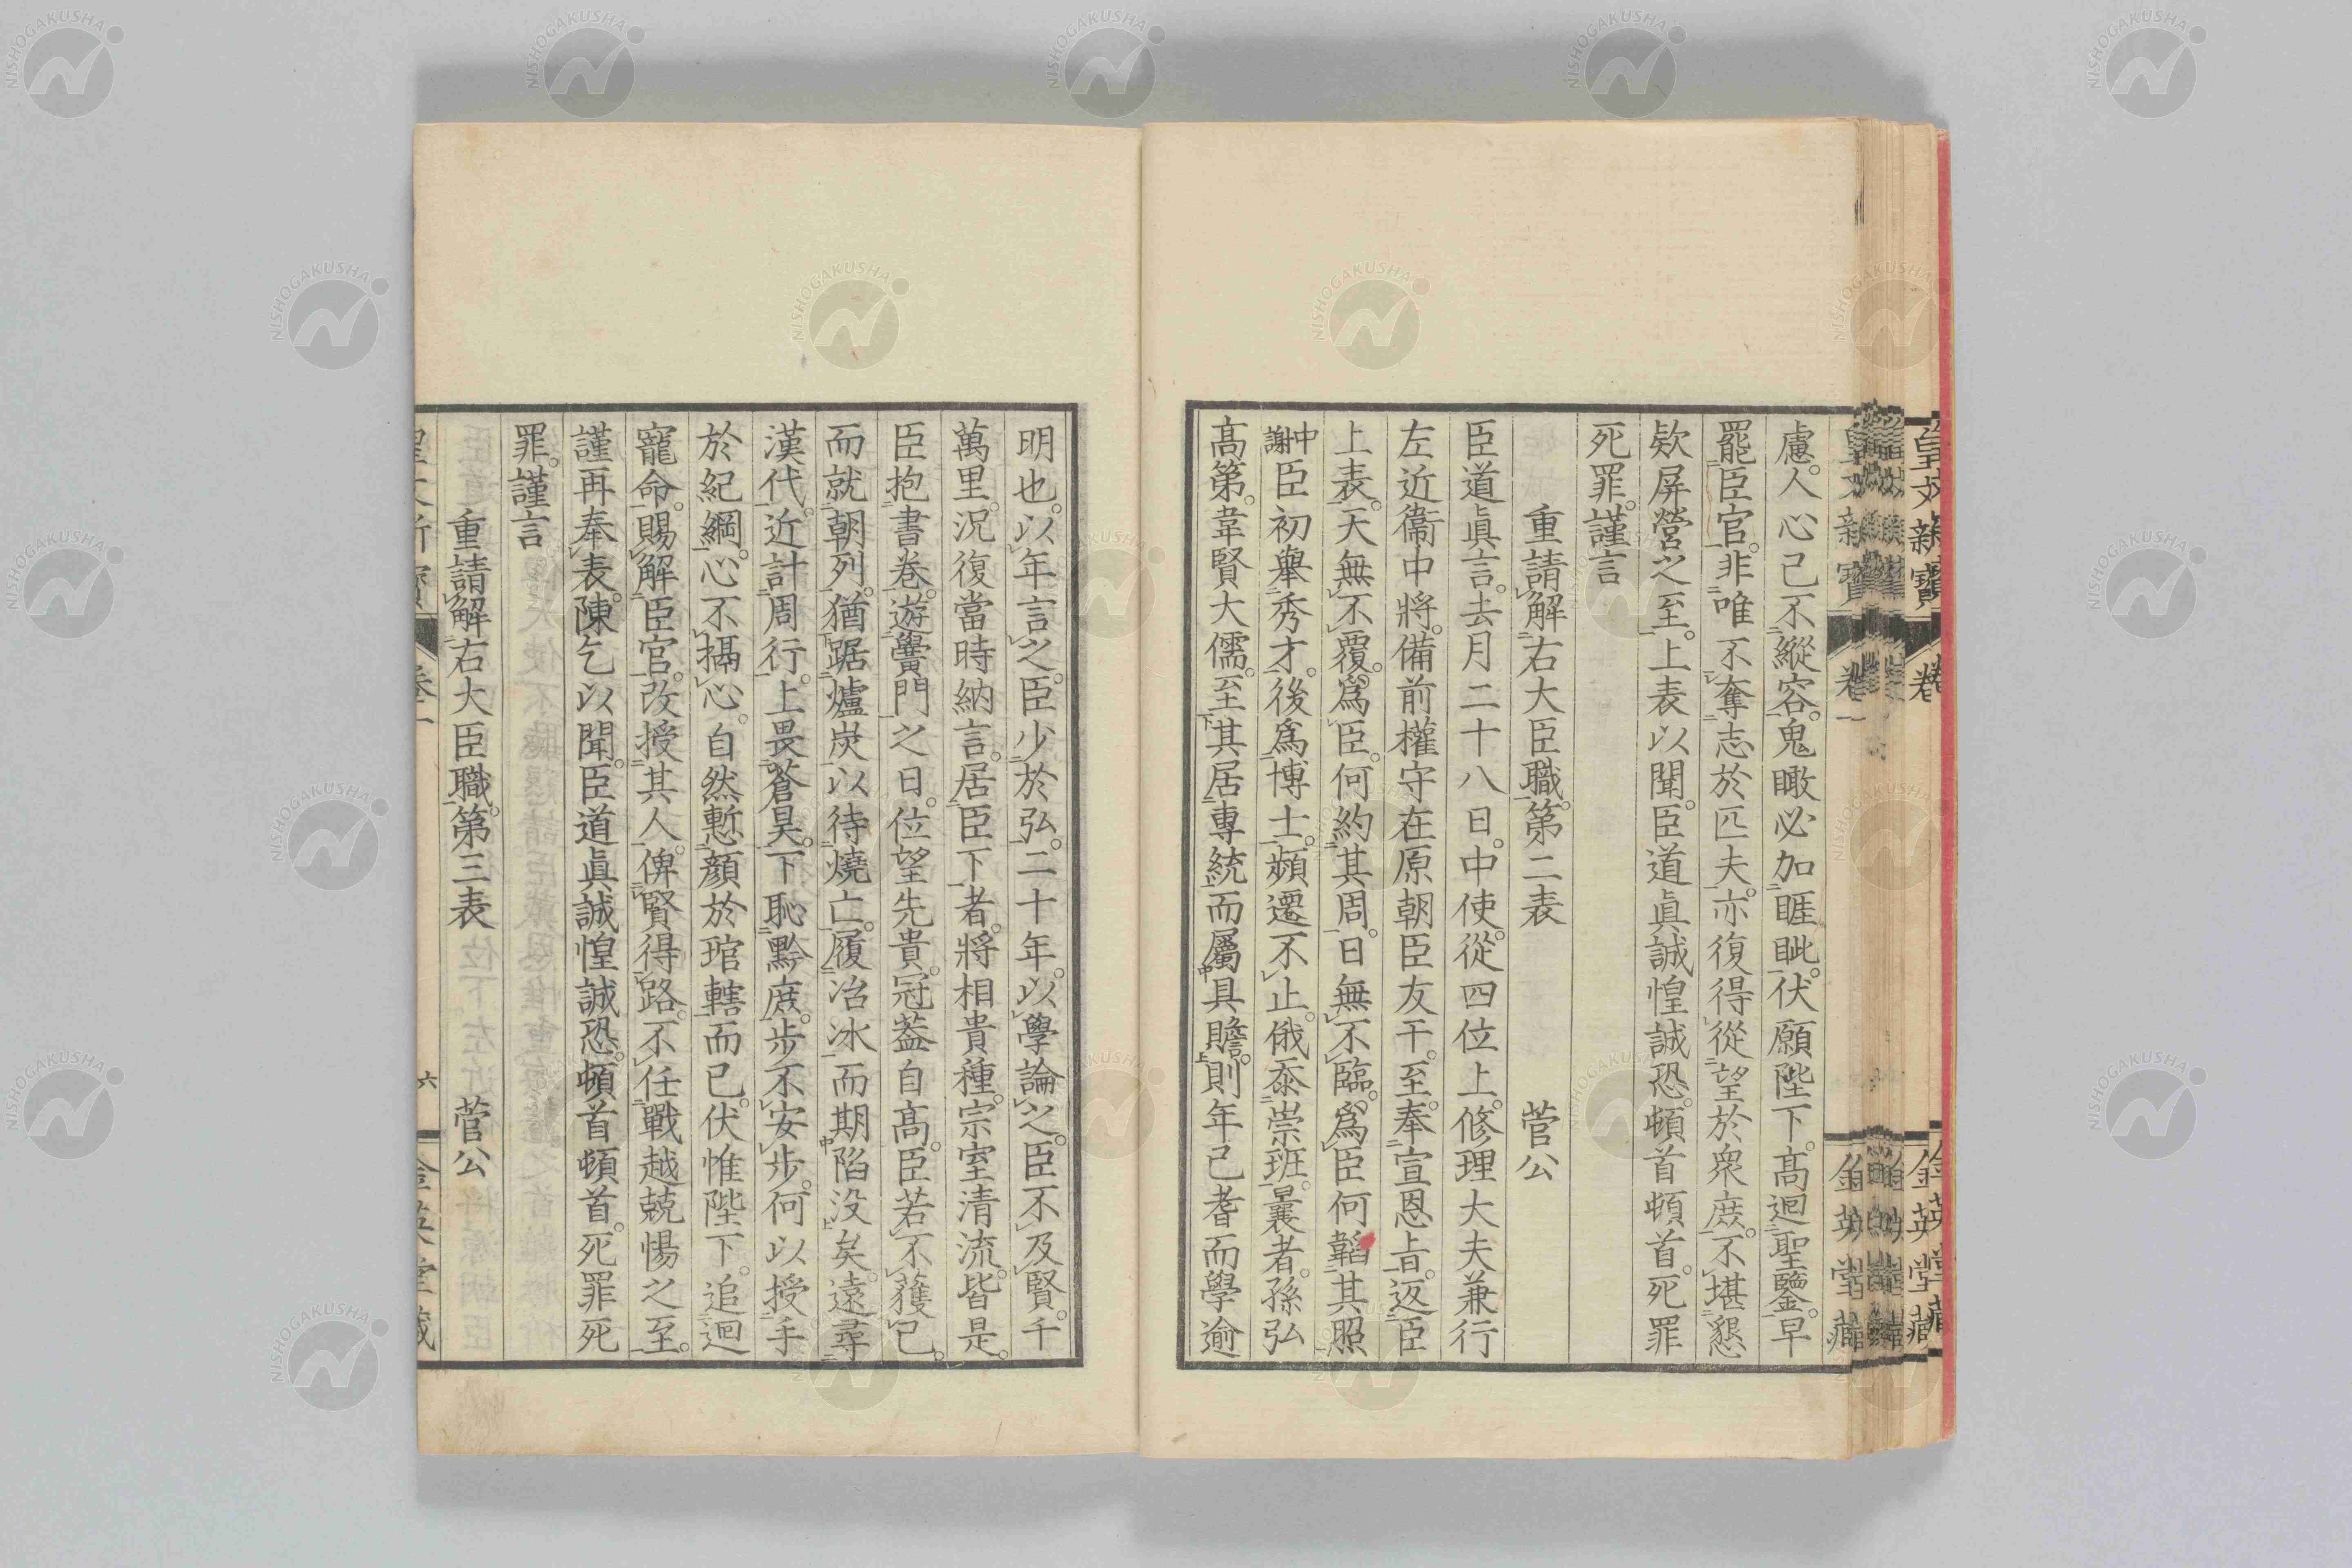 慮。人心已不縱容。鬼瞰必加睚眦。伏願陛下。高迴聖鑒。早
罷臣官。非唯不奪志於匹夫。亦復得從望於衆庶。不堪懇
欵屏營之至。上表以聞。臣道眞誠惶誠恐。頓首頓首。死罪
死罪。謹言
重請解右大臣職。第二表 菅公
臣道眞言。去月二十八日。中使。從四位上。修理大夫兼行
左近衞中將。備前權守在原朝臣友于。至。奉宣恩旨。返臣
上表。天無不覆。爲臣。何約其周。日無不臨。爲臣何韜其照
中謝臣初舉秀才。後爲博士。頻遷不止。俄忝崇班。曩者。孫弘
高第。韋賢大儒。至其居專統而屬具瞻。則年已耆而學逾
明也。以年言之。臣少於弘。二十年。以學論之。臣不及賢。千
萬里。況復當時納言。居臣下者。將相貴種。宗室清流。皆是。
臣抱書卷。遊黌門之日。位望先貴。冠葢自高。臣若不獲已。
而就朝列。猶踞爐炭以待燒亡。履冶冰而期陷没矣。遠尋
漢代。近計周行。上畏蒼昊。下恥黔庶。步不安步。何以授手
於紀綱。心不攝心。自然慙顔於琯轄而已。伏惟陛下。追迴
寵命。賜解臣官。改授其人。俾賢得路。不任戰越兢惕之至。
謹再奉表。陳乞以聞。臣道眞誠惶誠恐。頓首頓首。死罪死
罪。謹言
重請解右大臣職。第三表 菅公
皇文新寶 卷一 六 金英堂藏
皇文新寶 卷一 金英堂藏
NISHOGAKUSHA